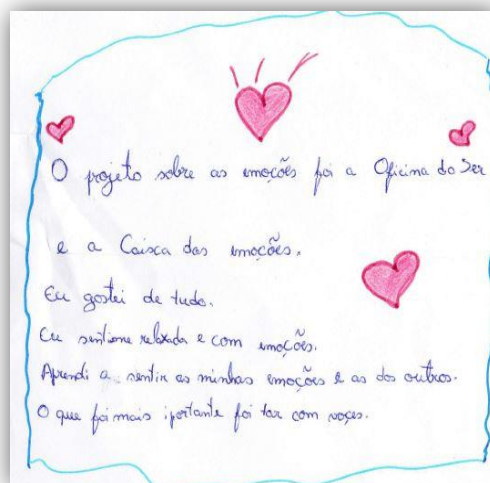 O projeto sobre as emoções foi a Oficina do Ser
e a Caisca das emoções.
Eu gostei de tudo.
Eu sentione relaxada e com emoções.
Aprendi a sentir as minhas emoções e as dos outros.
O que foi mais iportante foi tar com voçes.